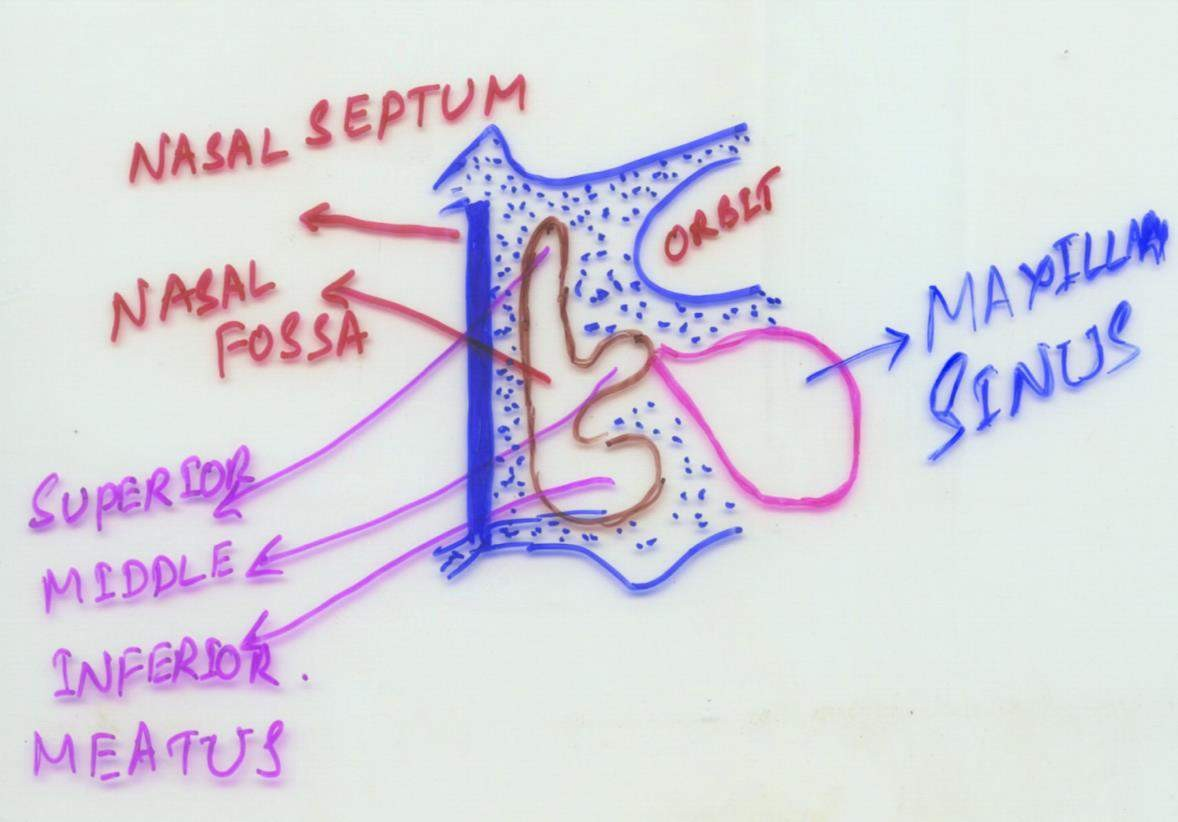 NASAL SEPTUM
NASAL
FOSSA
ORBIT
MAXILLARY
SINUS
SUPERIOR
MIDDLE
INFERIOR.
MEATUS